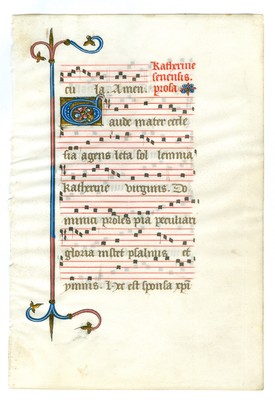 Katherine
cu la. Amen. senensis.
prosa
Gaude mater eccle
sia agens leta sol lemnia
Katherine virginis. Do
minici proles pia peculiari
gloria instret psalmus et
ymnus. Hec est sponsa xpi